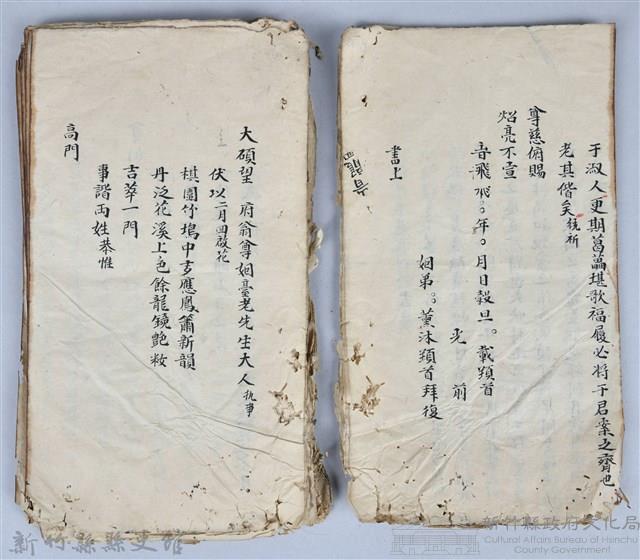 于淑人更期葛藟堪歌福履必将于君案之齊也
老其偕矣統祈
尊慈俯賜
炤亮不宣
旹飛 年 月日穀旦 載頫首
光前
姻弟 薰沐頫首拜復
書上
大碩望 府翁尊姻臺老先生大人執事
伏以二月四啟花
棋園竹塢中玄應鳳簫新韻
丹泛花溪上色餘龍鏡艶粧
吉萃一門
事諧両姓恭惟
高門
新竹縣縣史館
新竹縣政府文化局
Cultural Affairs Bureau of Hsinchu
County Government